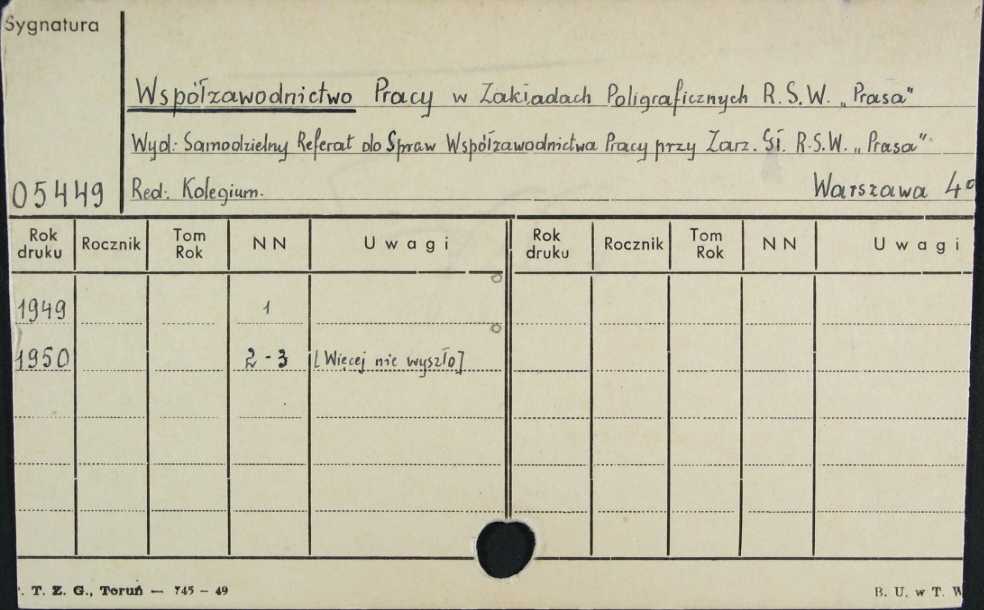 Sygnatura
Współzawodnictwo Pracy w Zakładach Poligraficznych R.S.W. „Prasa"
Wyd: Samodzielny Referat do Spraw Współzawodnictwa Pracy przy Zarz. Gł. R.S.W. „Prasa"
05449 Red: Kolegium. Warszawa 4°
Rok druku Rocznik Tom Rok NN Uwagi Rok druku Rocznik Tom Rok NN Uwagi
1949 1
1950 2-3 [Więcej nie wyszło]
T. Z. G., Toruń — 745 – 49 B. U. w T. W